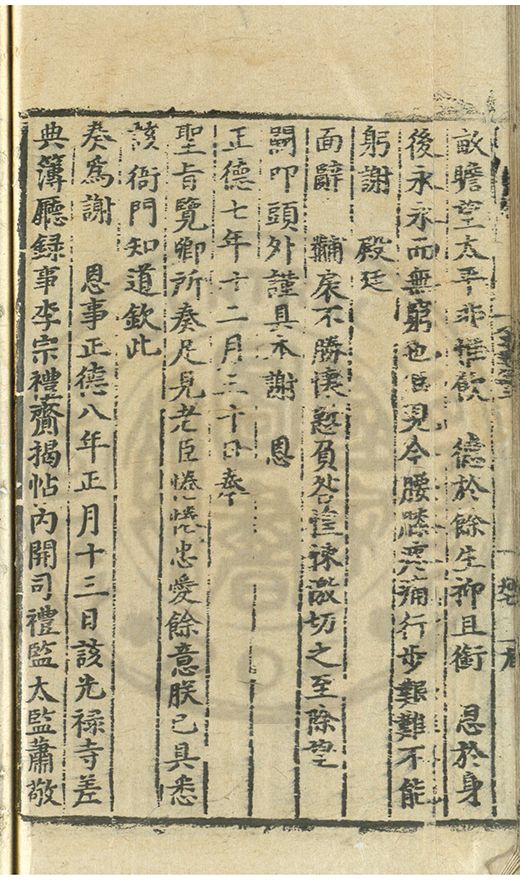 畝瞻望太平非惟飲　德於餘生抑且銜　恩於身
後永永而無窮也但現今腰膝悪痛行步艱難不能
躬謝　殿廷
面辭　黼扆不勝懐慙負咎惶悚激切之至除望
闕叩頭外謹具本謝　恩
正德七年十二月三十日奉
聖旨覽卿所奏足見老臣惓惓忠愛餘意朕已具悉
該衙門知道欽此
奏爲謝　恩事正德八年正月十三日該光祿寺差
典簿廳録事李宗禮齎揭帖内開司禮監太監蕭敬